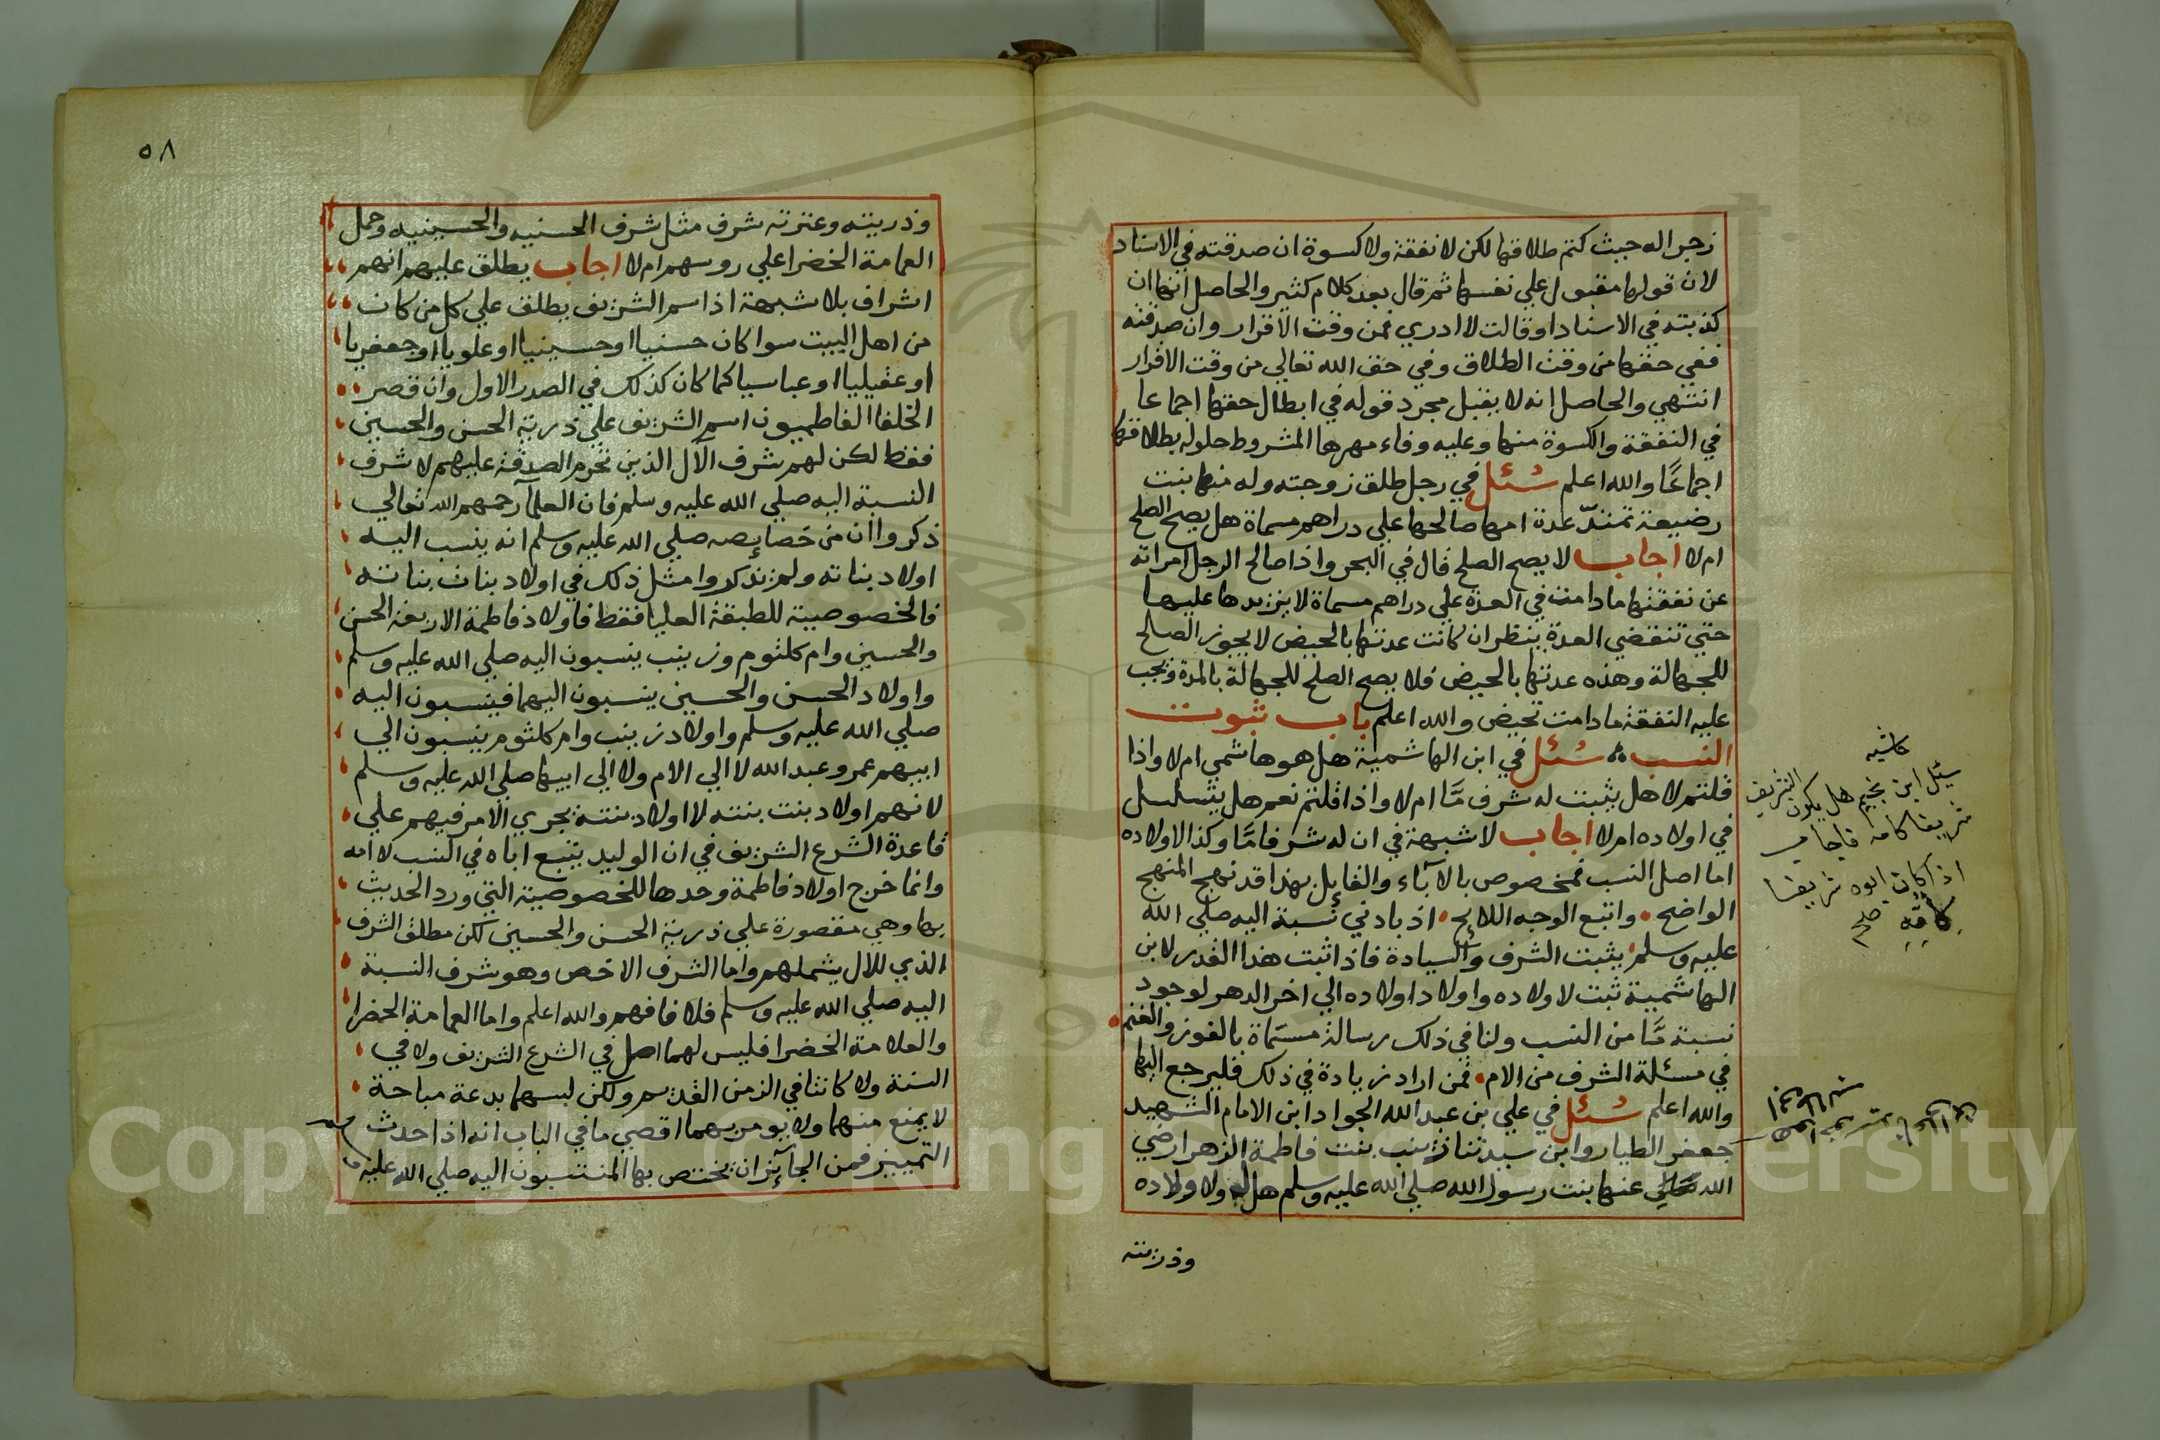 زجرا له حيث كتم طلاقها لكن لا نفقة ولا كسوة ان صدقته في الاسناد
لان قولها مقبول علي نفسها ثم قال بعد كلام كثير والحاصل انها ان
كذبته في الاسناد او قالت لا ادري فمن وقت الاقرار وان صدقته
ففي حقها من وقت الطلاق وفي حق الله تعالي من وقت الاقرار
انتهي والحاصل انه لا يقبل مجرد قوله في ابطال حقها اجماعا
في النفقة والكسوة منها وعليه وفاء مهرها المشروط حلوله بطلاقها
اجماعًا والله اعلم سُئل في رجل طلق زوجته وله منها بنت
رضيعة تمتدّ عدة امها صالحها علي دراهم مسماة هل يصح الصلح
ام لا اجاب لا يصح الصلح قال في البحر واذا صالح الرجل امراته
عن نفقتها ما دامت في العدة علي دراهم مسماة لا يزيدها عليها
حتي تنقضي العدة ينظر ان كانت عدتها بالحيض لا يجوز الصلح
للجهالة وهذه عدتها بالحيض فلا يصح الصلح للجهالة بالمدة وتجب
عليه النفقة ما دامت تحيض والله اعلم باب ثبوت
النسب سُئل في ابن الهاشمية هل هو هاشمي ام لا واذا
قلتم لا هل يثبت له شرف مّا ام لا واذا قلتم نعم هل يتسلسل
في اولاده ام لا اجاب لا شبهة في ان له شرفا مّا وكذا لاولاده
اما اصل النسب فمخصوص بالآباء والقايل بهذا قد نهج المنهج
الواضح واتبع الوجه اللايح اذ بادني نسبة اليه صلي الله
عليه وسلم يثبت الشرف والسيادة فاذا ثبت هذا القدر لابن
الهاشمية ثبت لاولاده واولاد اولاده الي اخر الدهر لوجود
نسبة مّا من النسب ولنا في ذلك رسالة مسمّاة بالفوز والغنم
في مسئلة الشرف من الام فمن اراد زيادة في ذلك فليرجع اليها
والله اعلم سُئل في علي بن عبد الله الجواد ابن الامام الشهيد
جعفر الطيار وابن سيدتنا زينب بنت فاطمة الزهرا رضي
الله عنها بنت رسول الله صلي الله عليه وسلم هل له ولاولاده
وذريته
سئل ابن نجيم هل يكون الشريف
شريفا كامه فاجاب
اذا كان ابوه شريفا
٥٨
وذريته وعترته شرف مثل شرف الحسنيه والحسينيه وحمل
العمامة الخضرا علي روسهم ام لا اجاب يطلق عليهم انهم
اشراف بلا شبهة اذ اسم الشريف يطلق علي كل من كان
من اهل البيت سوا كان حسنيا او حسينيا او علويا او جعفريا
او عقيليا او عباسيا كما كان كذلك في الصدر الاول وان قصر
الخلفا الفاطميون اسم الشريف علي ذرية الحسن والحسين
فقط لكن لهم شرف الآل الذين تحرم الصدقة عليهم لا شرف
النسبة اليه صلي الله عليه وسلم فان العلمآ رحمهم الله تعالي
ذكروا ان من خصايصه صلي الله عليه وسلم انه ينسب اليه
اولاد بناته ولم يذكروا مثل ذلك في اولاد بنات بناته
فالخصوصية للطبقة العليا فقط فاولاد فاطمة الاربعة الحسن
والحسين وام كلثوم وزينب ينسبون اليه صلي الله عليه وسلم
واولاد الحسن والحسين ينسبون اليهما فينسبون اليه
صلي الله عليه وسلم واولاد زينب وام كلثوم ينسبون الي
ابيهم عمر وعبد الله لا الي الام ولا الي ابيها صلي الله عليه وسلم
لانهم اولاد بنت بنته لا اولاد بنته يجري الامر فيهم علي
قاعدة الشرع الشريف في ان الوليد يتبع اباه في النسب لا امه
وانما خرج اولاد فاطمة وحدها للخصوصية التي ورد الحديث
بها وهي مقصورة علي ذرية الحسن والحسين لكن مطلق الشرف
الذي للال يشملهم واما الشرف الاخص وهو شرف النسبة
اليه صلي الله عليه وسلم فلا فافهم والله اعلم واما العمامة الخضرا
والعلامة الخضرا فليس لهما اصل في الشرع الشريف ولا في
السنة ولا كانتا في الزمن القديم ولكن لبسهما بدعة مباحة
لا يمنع منهما ولا يومر بهما اقصي ما في الباب انه اذا حدث
التمييز فمن الجآيز ان يختص بها المنتسبون اليه صلي الله عليه
Copyright © King Saud University